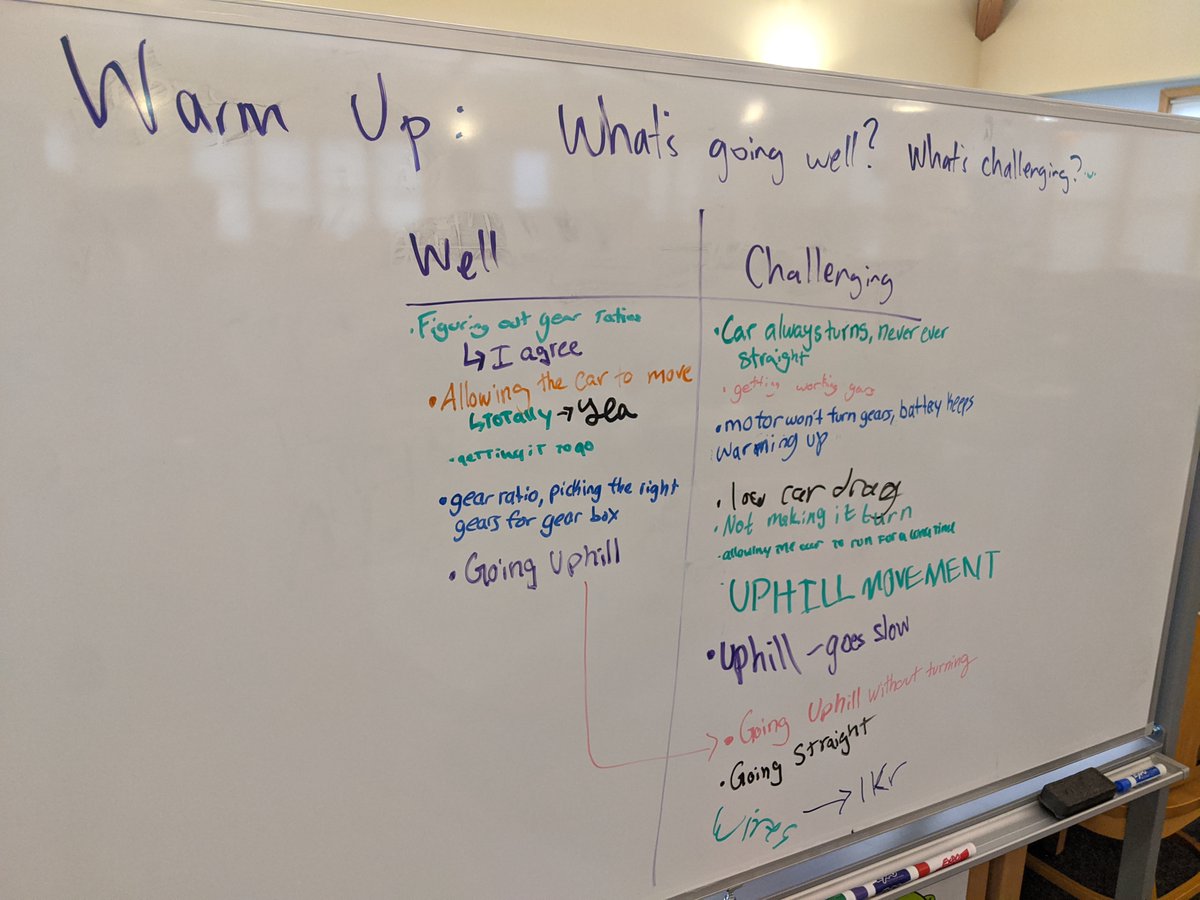 Warm Up: What's going well? What's challenging?
Well
•Figuring out gear ratios
↳I agree
•Allowing the car to move
↳Totally→Yea
•getting it to go
•gear ratio, picking the right
gears for gear box
•Going Uphill
Challenging
•Car always turns, never ever
straight
•getting working gears
•motor won't turn gears, battey keeps
warming up
•low car drag
•Not making it turn
•allowing the car to run for a long time
UPHILL MOVEMENT
•Uphill - goes slow
•Going Uphill without turning
•Going Straight
Wires → IKr
EXPO